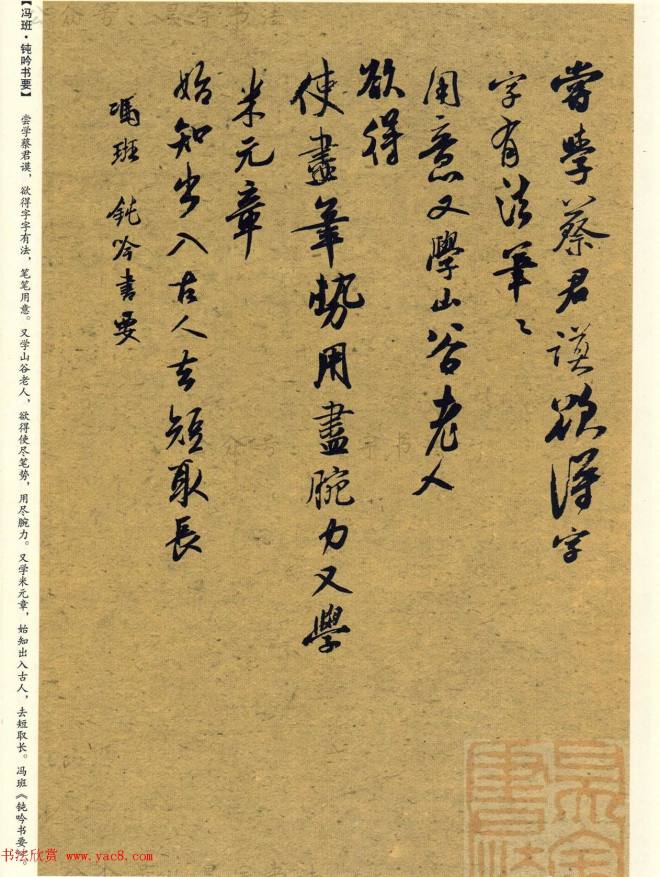 嘗學蔡君謨欲得字
字有法筆〻
用意又學山谷老人
欲得
使盡筆勢用盡腕力又學
米元章
始知出入古人去短取長
馮班 鈍吟書要
【冯班·钝吟书要】 尝学蔡君谟，欲得字字有法，笔笔用意。又学山谷老人，欲得使尽笔势，用尽腕力。又学米元章，始知出入古人，去短取长。冯班《钝吟书要》。
书法欣赏 www.yac8.com